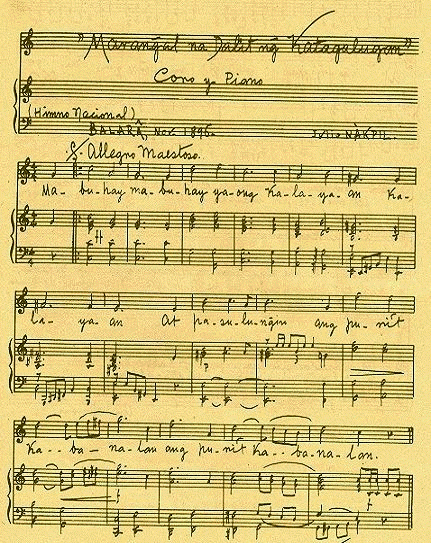 "Marangal na Dalit ng Katagalugan"
Coro y Piano
(Himno Nacional)
BALARÂ, Nov. 1896. Julio NÁKPIL.
Allegro Maestoso.
Ma- bu-hay ma-bu-hay ya-ong Ka-la-ya-an Ka-
la- ya- an At pa-su-lu-ngin ang pu-nit
Ka-- ba- na-lan ang pu-nit Ka-- ba-na-lan.